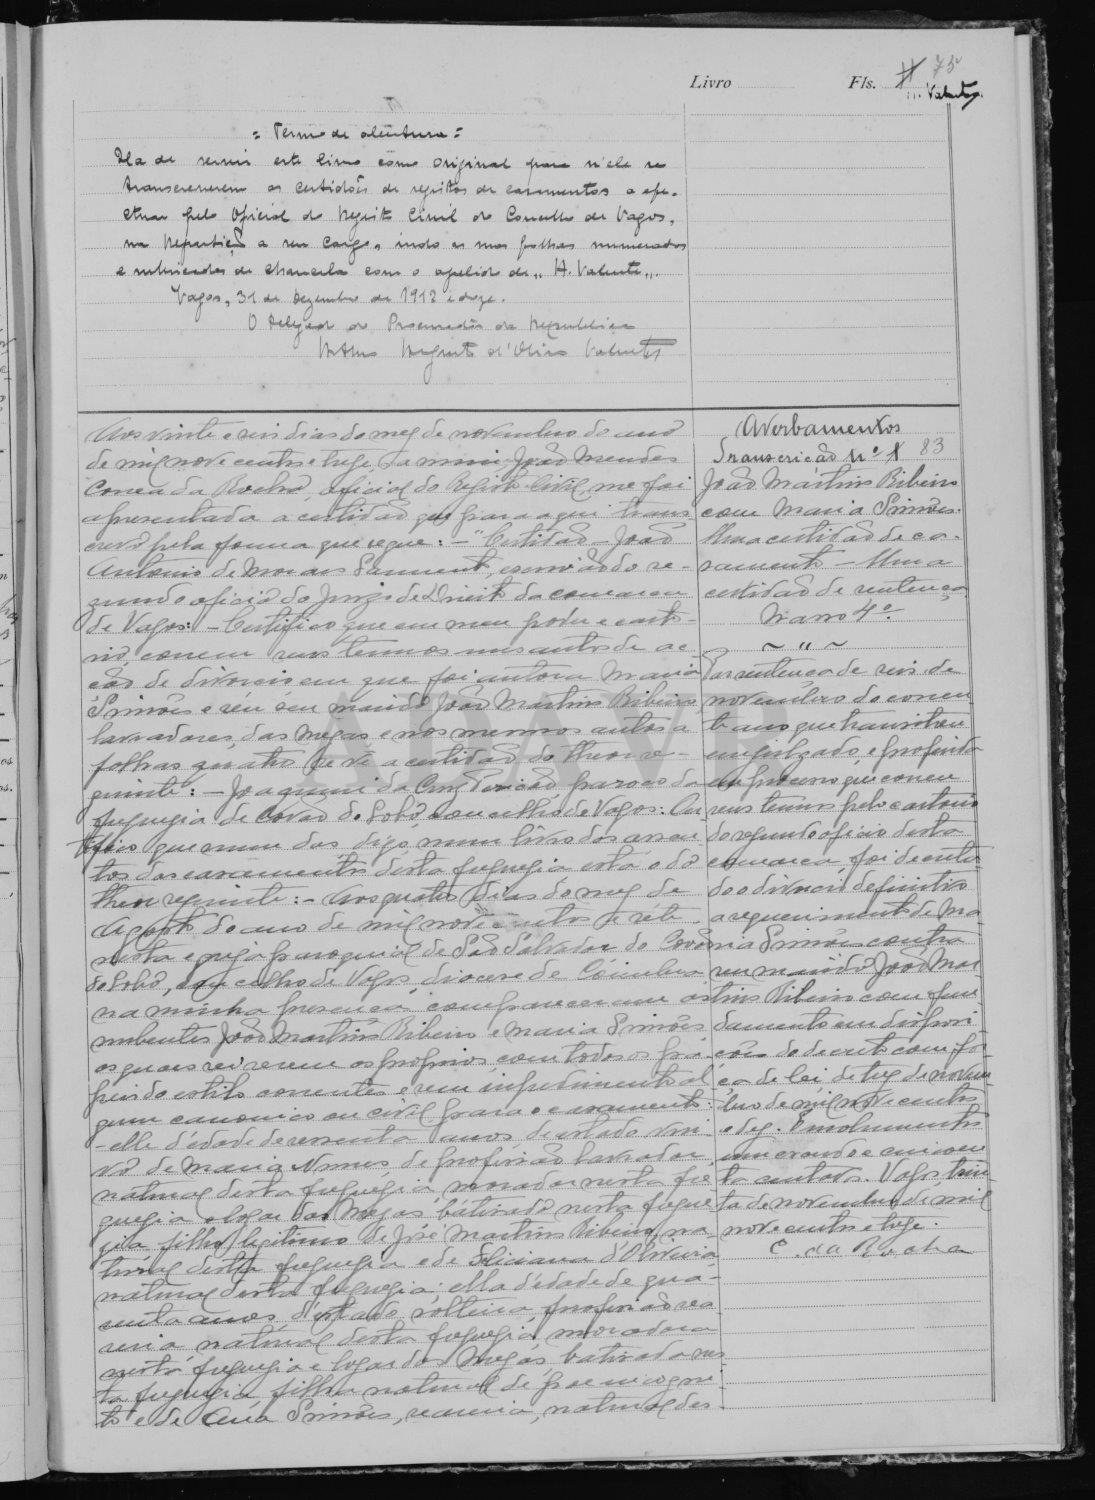 Livro Fls. 75
H. Valente
= Termo de abertura =
Ha de servir este livro como original para n'ele se
transcreverem as certidões de registos de casamentos a efe-
ctuar pelo Oficial do Registo Civil do Concelho de Vagos,
na Repartição a seu cargo, indo as suas folhas numeradas
e rubricadas de chancela com o apelido de „ H. Valente „.
Vagos, 31 de Dezembro de 1912 e doze.
O Delegado do Procurador da Republica
d'Oliv.ª Valente
Aos vinte e seis dias do mez de novembro do ano
de mil nove centos e treze, a mim João Mendes
Correa da Rocha, oficial do Registo Civil, me foi
apresentada a certidão que para aqui trans
crevo pela forma que segue: – "Certidão – João
Antonio de Moraes Sarmento, escrivão do se-
gundo oficio do Juizo de Direito da comarca
de Vagos: – Certifico que em meu poder e carto-
rio, correm seus termos uns autos de ac
ção de divorcio em que foi autora Maria
Simões e réu seu marido João Martins Ribeiro
lavradores, das Mezas e nos mesmos autos a
folhas quatro se vê a certidão do theor se-
guinte: – Joaquim da Conceição paroco da
freguezia de Covão do Lobo concelho de Vagos: Cer
tifico que num dos digo, num livro dos assen
tos dos casamentos desta freguezia está o do
theor seguinte: – Aos quatro dias do mez de
Agosto do ano de mil nove centos e sete
nesta egreja paroquial de São Salvador do Covão
do Lobo, concelho de Vagos diocese de Coimbra
na minha presença compareceram os
nubentes João Martins Ribeiro e Maria Simões
os quaes sei serem os proprios com todos os pa
peis do estilo correntes e sem impedimento al
gum canonico ou civil para o casamento:
– elle d'edade de sessenta anos de estado viu-
vo de Maria Nunes de profissão lavrador
natural desta freguezia, morador nesta fre
guezia e logar das Mezas batisado nesta fregue
zia filho legitimo de José Martins Ribeiro, na
tural desta freguezia e de Feliciana d'Oliveira
natural desta freguezia; ella d'edade de qua-
renta anos d'estado solteira profissão sea
reira natural desta freguezia moradora
nesta freguezia e logar das Mezas, batisada nes
ta freguezia filha natural de pae incogni-
to e de Ana Simões, seareira, natural des-
Averbamentos
Transcrição Nº 1 83
João Martins Ribeiro
com Maria Simões.
Uma certidão de ca-
samento – Uma
certidão de sentença
Maço 4º.
~ " ~
Por sentença de seis de
novembro do corren
te ano que transitou
em julgado, e proferida
em processo que correu
seus termos pelo cartorio
do segundo oficio desta
comarca foi decreta
do o divorcio definitivo
a requerimento de Ma
ria Simões contra
seu marido João Mar
tins Ribeiro com fun
damento em disposi-
ções do decreto com for
ça de lei de trez de novem
bro de mil nove centos
e dez. Emolumentos
um escudo e cincoen
ta centavos. Vagos trin
ta de novembro de mil
nove centos e treze.
C. da Rocha
ADAV